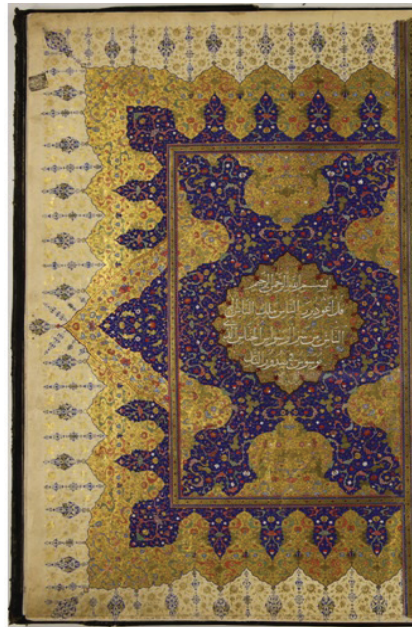 بسم الله الرحمن الرحيم
قل اعوذ برب الناس ملك الناس اله
الناس من شر الوسواس الخناس الذی
يوسوس فی صدور الناس